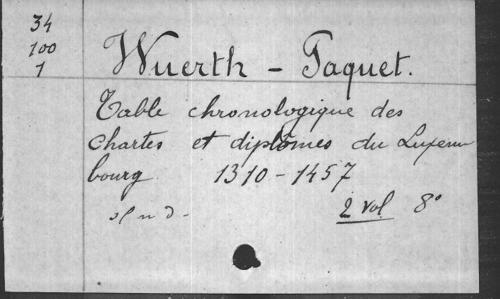 34
100
1
Wuerth - Paquet.
Table chronologique des
chartes et diplômes du Luxem
bourg 1310-1457
sl n d -
2 vol 8°